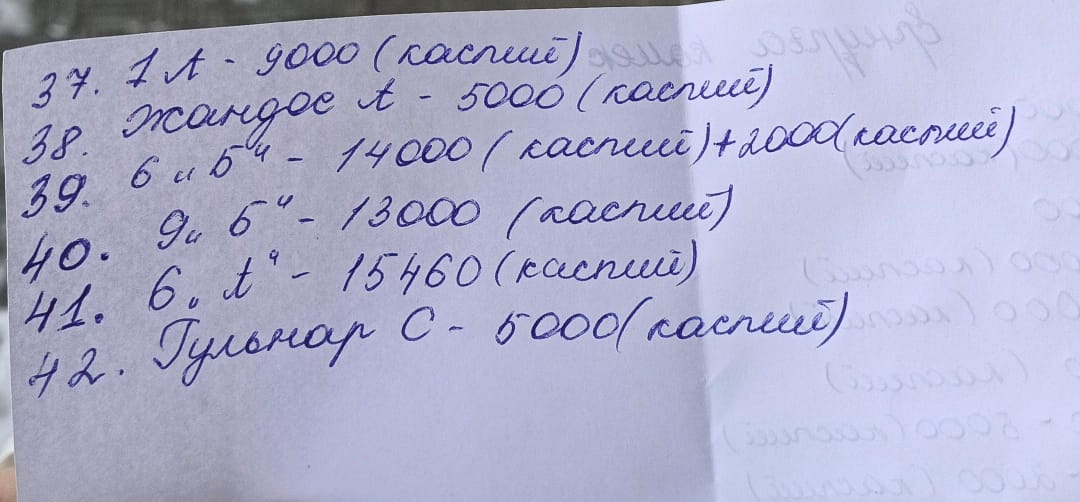 37. 1 А - 9000 (каспий)
38. Жандос А - 5000 (каспий)
39. 6 „Б“ - 14000 (каспий) + 2000 (каспий)
40. 9 „Б“ - 13000 (каспий)
41. 6 „А“ - 15460 (каспий)
42. Гульнар С - 5000 (каспий)